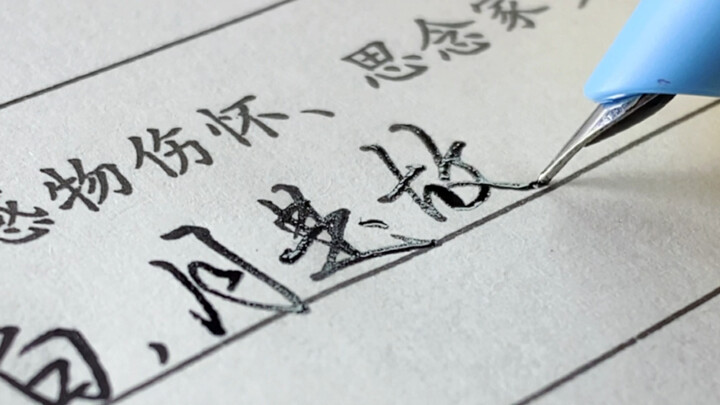 感物伤怀、思念家
白,月是故